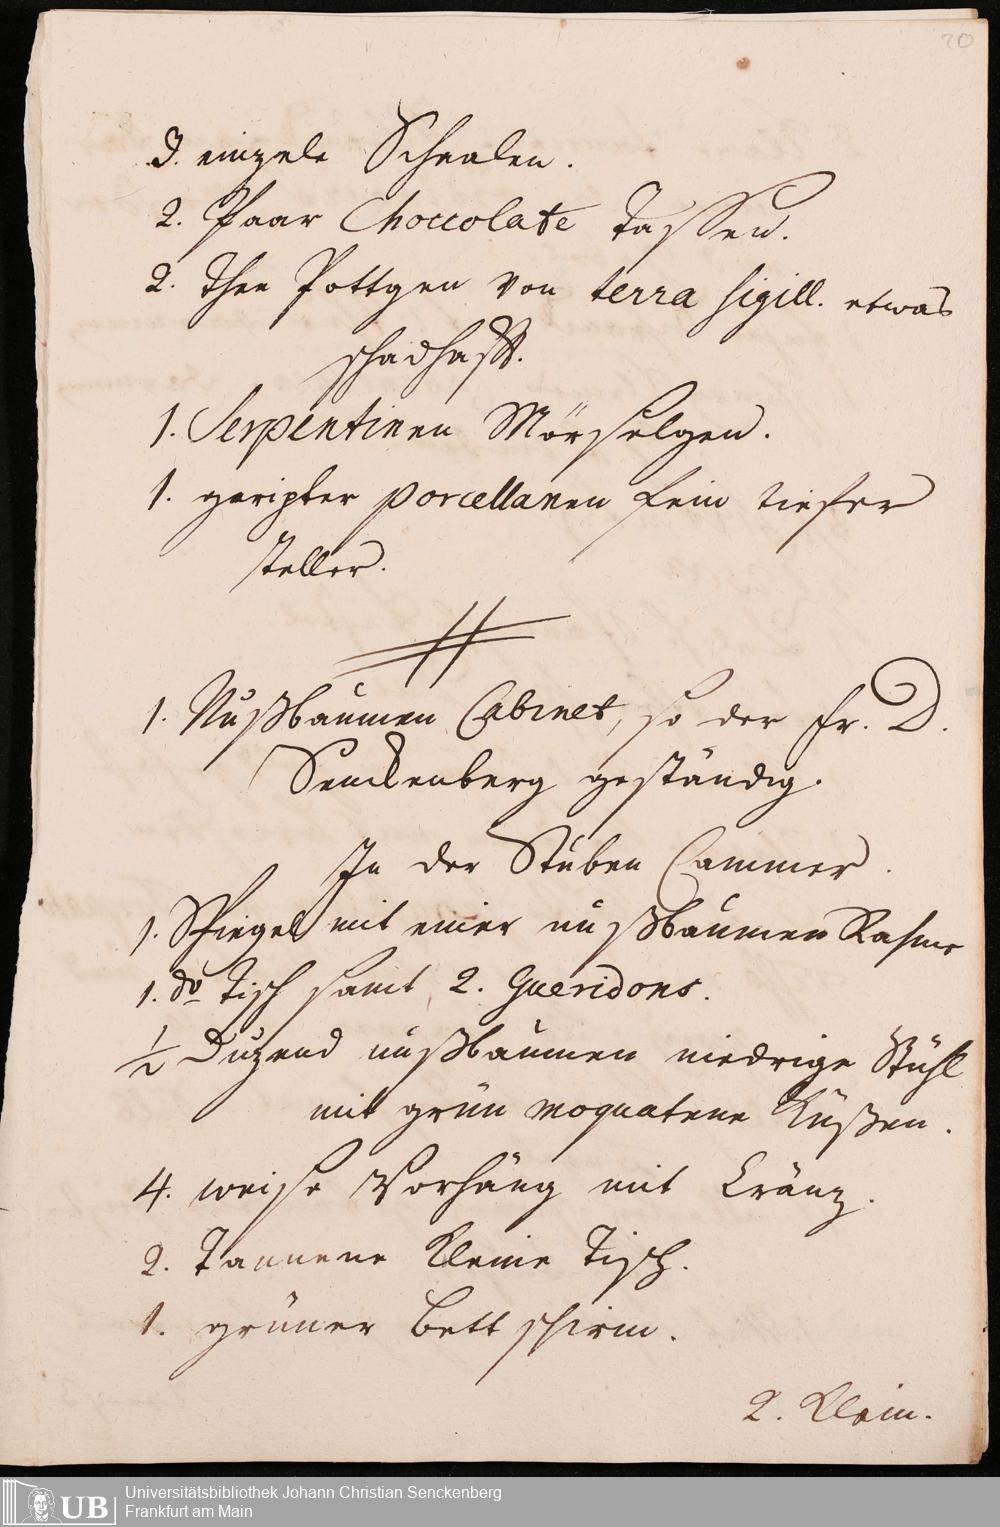 20
3. einzele Schaalen.
2. Paar Choccolate Tassen.
2. Thee Pottgen von terra sigill. etwas
schadhafft.
1. Serpentinen Mörselgen.
1. geripter porcellanen fein tiefer
Teller.
1. Nußbaumen Cabinet, so der Hr. D.
Senckenberg geständig.
In der Stuben Cammer.
1. Spiegel mit einer nußbaumen Rahme
1. do Tisch samt 2. Gueridons.
1/2 Duzend nußbaumen niedrige Stühl
mit grün moquatene Küßen.
4. weise Vorhäng mit Cräntz.
2. Tannene kleine Tisch.
1. grüner Bett schirm.
2. klein.
UB Universitätsbibliothek Johann Christian Senckenberg
Frankfurt am Main